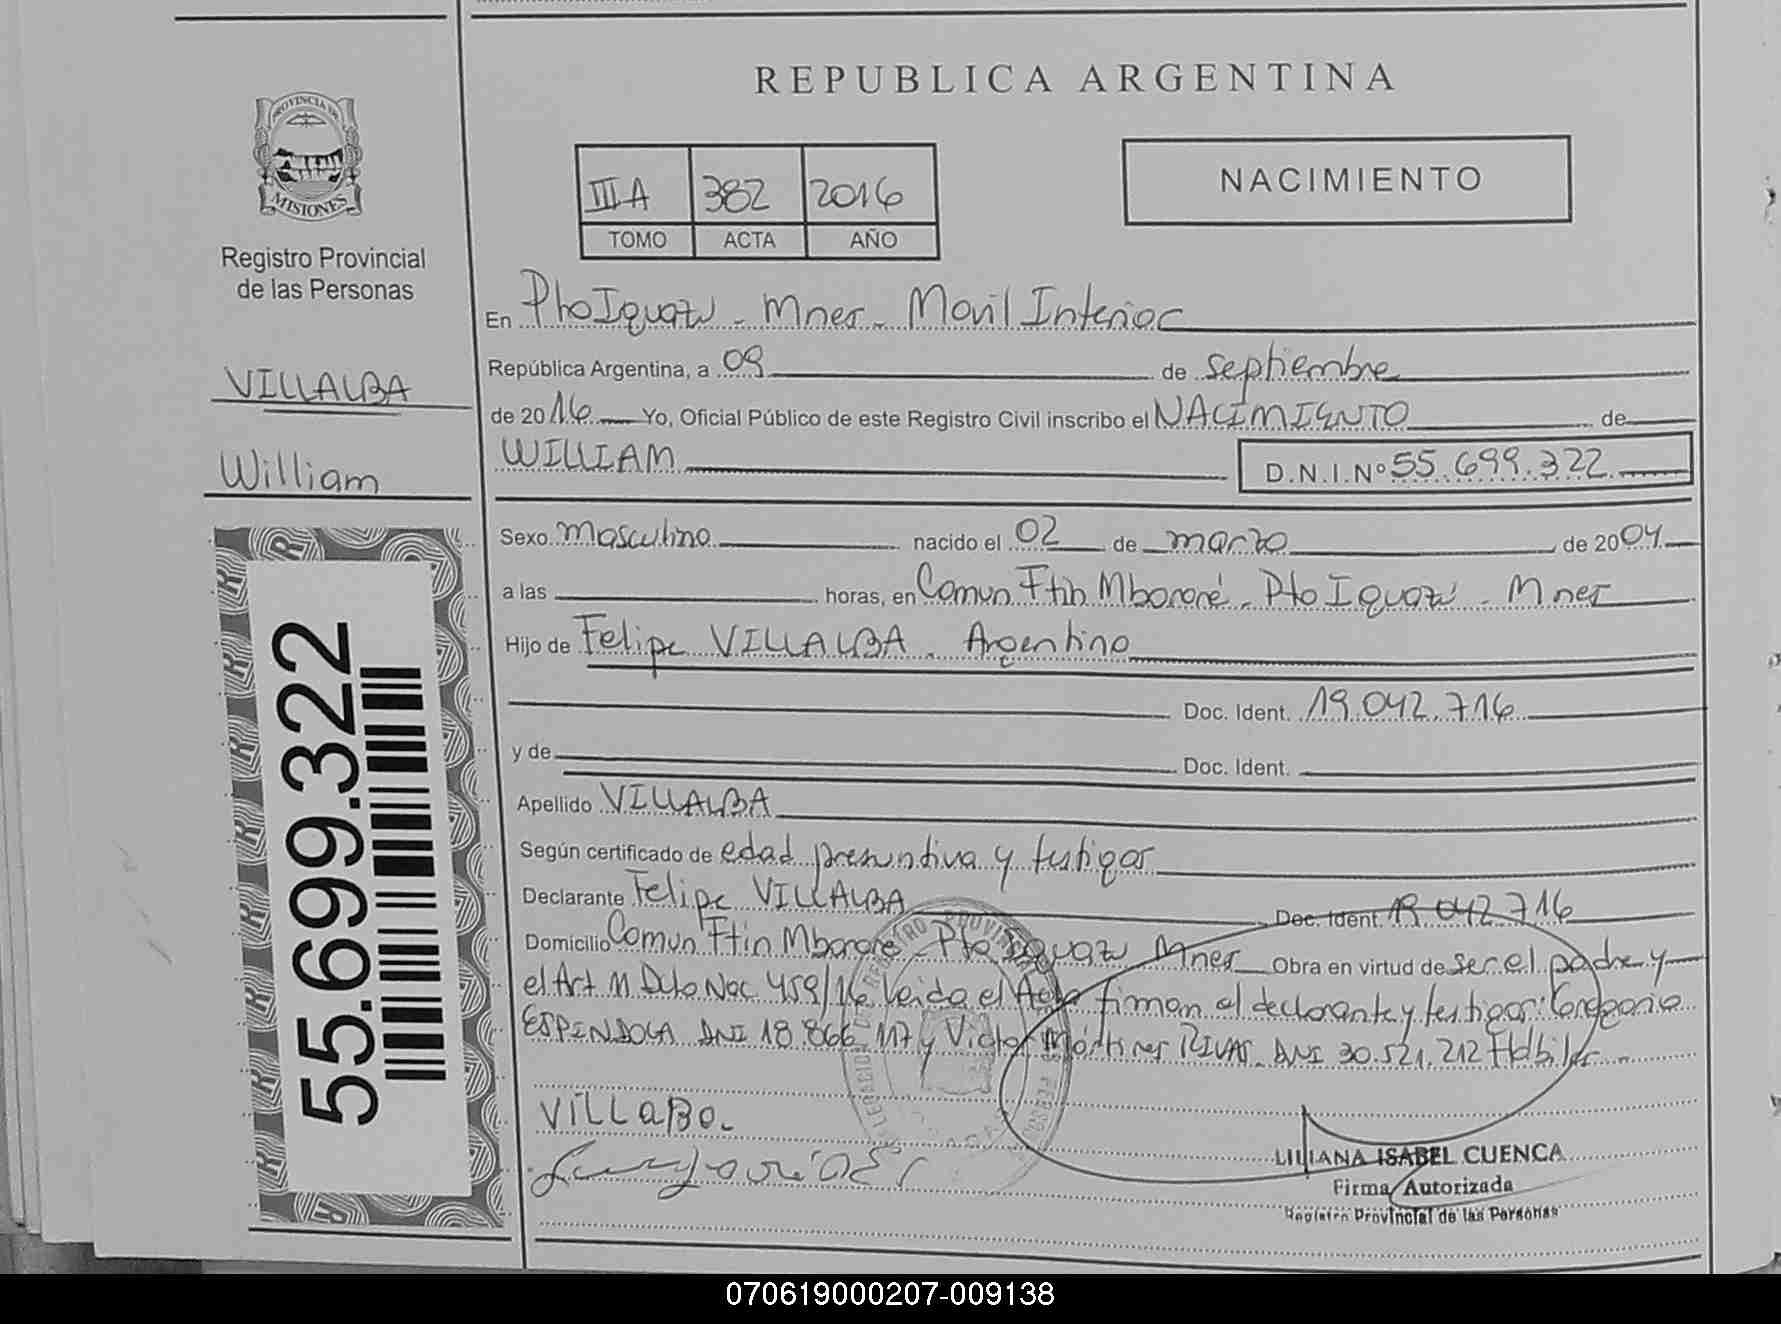 REPUBLICA ARGENTINA
PROVINCIA DE
MISIONES
Registro Provincial
de las Personas
VILLALBA
William
55.699.322
III A 382 2016
TOMO ACTA AÑO
NACIMIENTO
En Pto Iguazu - Mnes - Movil Interior
República Argentina, a 09 de septiembre
de 2016 Yo, Oficial Público de este Registro Civil inscribo el NACIMIENTO de
WILLIAM D.N.I.Nº 55.699.322
Sexo masculino nacido el 02 de marzo de 2004
a las horas, en Comun Ftin Mbororé - Pto Iguazu - Mnes
Hijo de Felipe VILLALBA. Argentino
Doc. Ident. 19.042.716
y de Doc. Ident.
Apellido VILLALBA
Según certificado de edad presuntiva y testigos
Declarante Felipe VILLALBA Doc. Ident. 19.042.716
Domicilio Comun Ftin Mbororé - Pto Iguazu Mnes Obra en virtud de ser el padre y
el Art 11 Dcto Nac 459/16 leida el Acta firman el declarante y testigos:
ESPINDOLA DNI 18.866.117 y Victor Martinez RIVAS DNI 30.521.212 Hábiles
VILLABA.
LILIANA ISABEL CUENCA
Firma Autorizada
Registro Provincial de las Personas
070619000207-009138